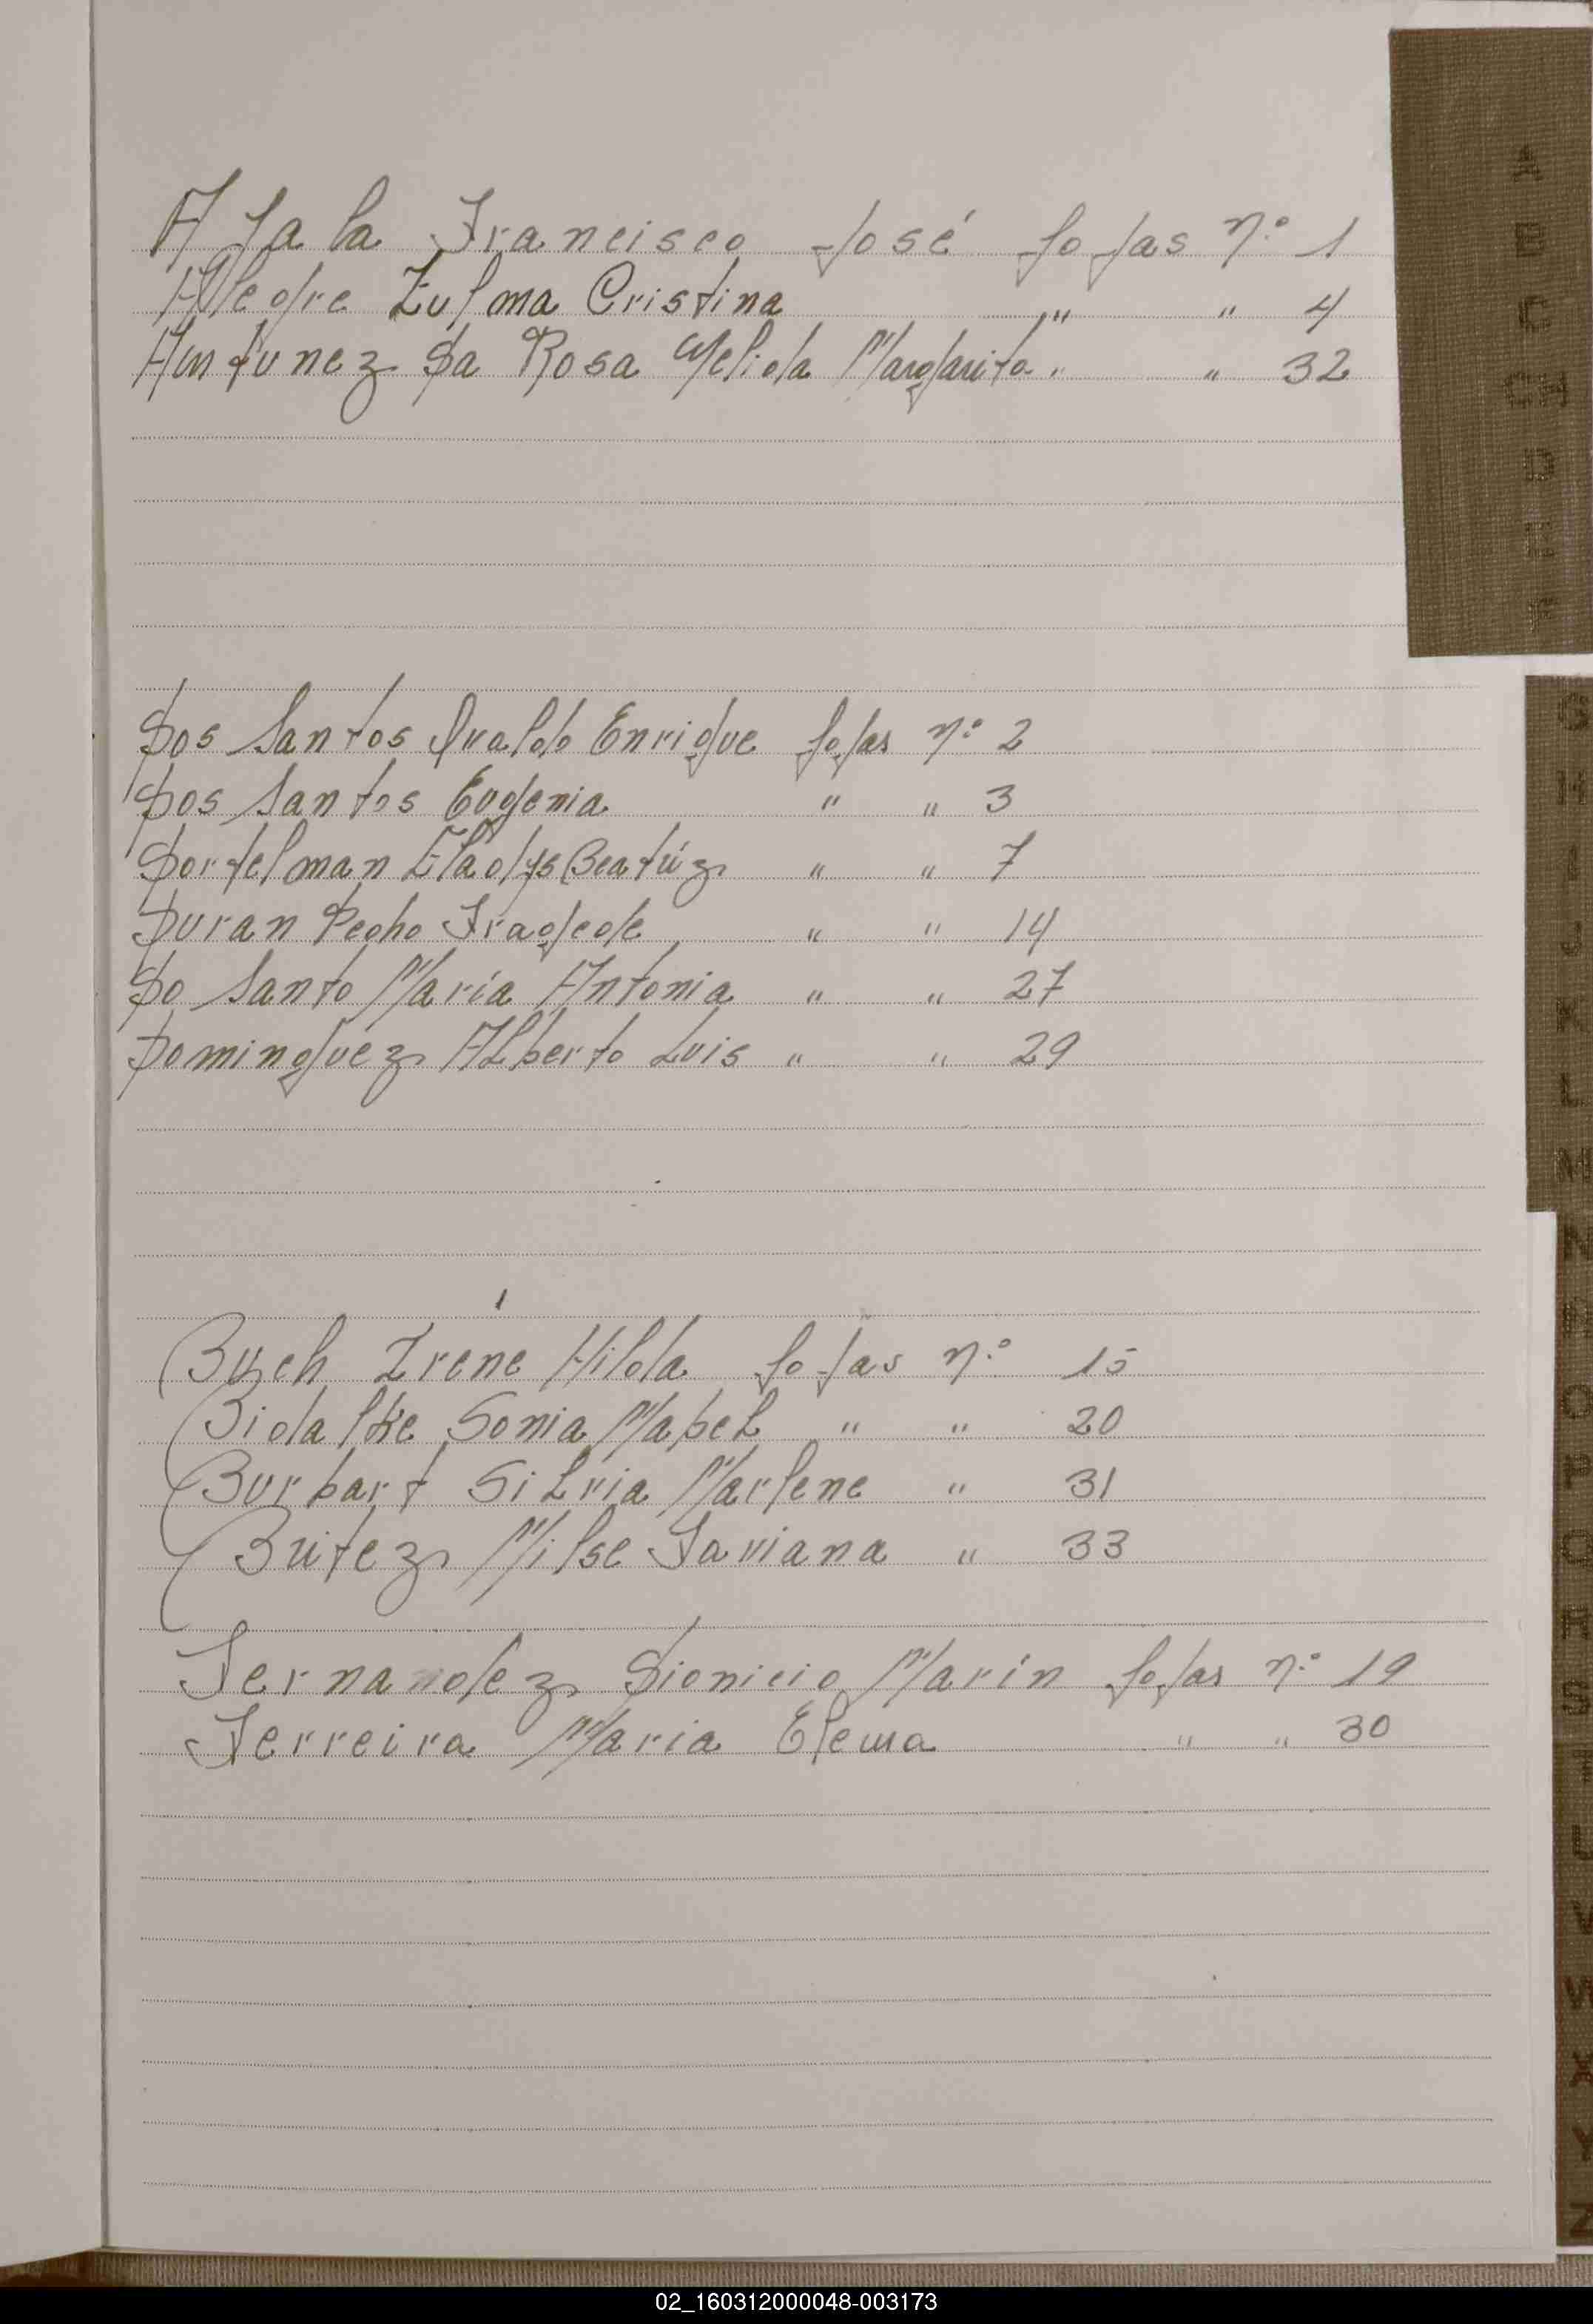 Ayala Francisco José fojas n.° 1
Allegre Zulma Cristina " " 4
Antunez Da Rosa Nelida Margarita " " 32
Dos Santos Ivaldo Enrique fojas n° 2
Dos Santos Eugenia " " 3
Dortelman Gladys Beatriz " " 7
Duran Pedro " " 14
Do Santo María Antonia " " 27
Dominguez Alberto Luis " " 29
Irene Hilda fojas n.° 15
Bidalke Sonia Mabel " " 20
Burbart Silvia Marlene " 31
Britez Nilse Faviana " 33
Fernandez Dionicio Marín fojas n° 19
Ferreira Maria Elena " " 30
A
B
C
CH
D
E
F
G
H
I
J
K
L
M
N
Ñ
O
P
Q
R
S
T
U
V
W
X
Y
Z
02_160312000048-003173